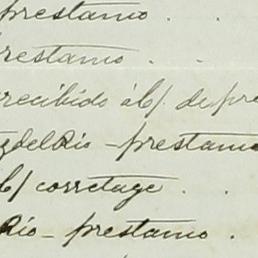 prestamo . .
prestamo .
recibido á b/. de pre
z del Rio - prestamo
b/ corretage . .
Rio - prestamo .